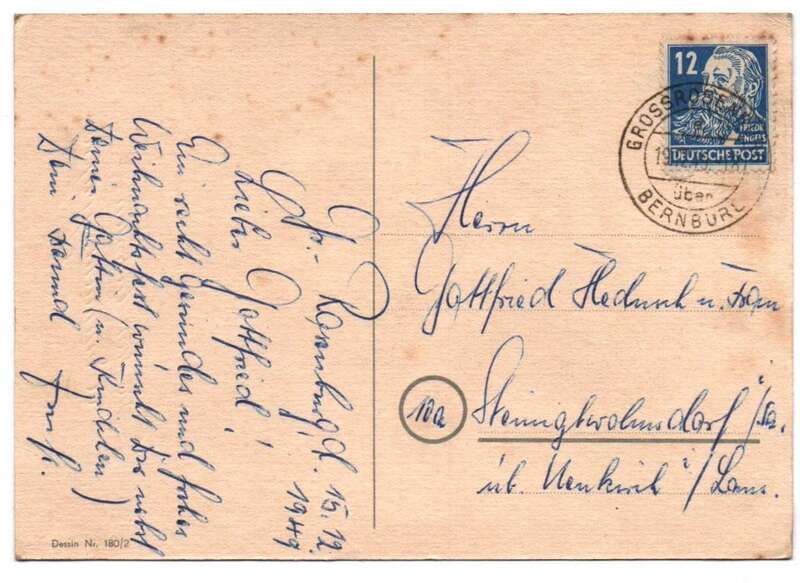 Gr.- Rosenburg, d. 15.12.
1949
Lieber Gottfried!
Ein recht gesundes und frohes
Weihnachtsfest wünscht Dir nebst
Deiner Gattin (u. Kindchen)
Dein Freund
12
FRIEDR.
ENGELS
DEUTSCHE POST
GROSSROSENB
über
BERNBURG
Herrn
Gottfried Hedusch u. Frau
10a
Steinigtwolmsdorf i/Sa.
üb. Neukirch i/Laus.
Dessin Nr. 180/2